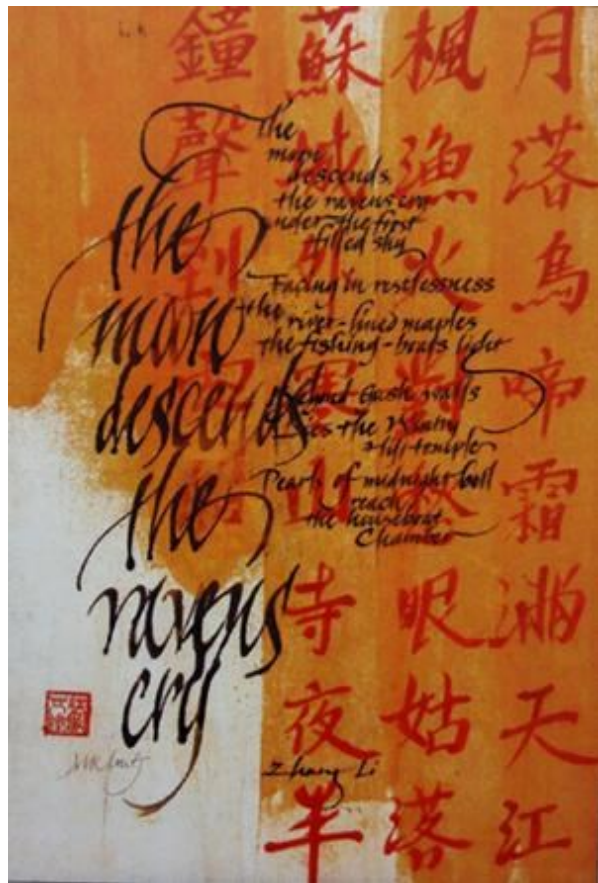 月落烏啼霜滿天江
楓漁火對愁眠姑落
蘇城外寒山寺夜半
鐘聲到客船
the
moon
descends
the
ravens
cry
The
moon
descends,
the ravens cry
under the frost
filled sky
Facing in restlessness
the river-lined maples
the fishing-boats light
walls
lies the Wintry
Hill temple
Pearls of midnight bell
reach
the houseboat
Chamber
Zhang Li